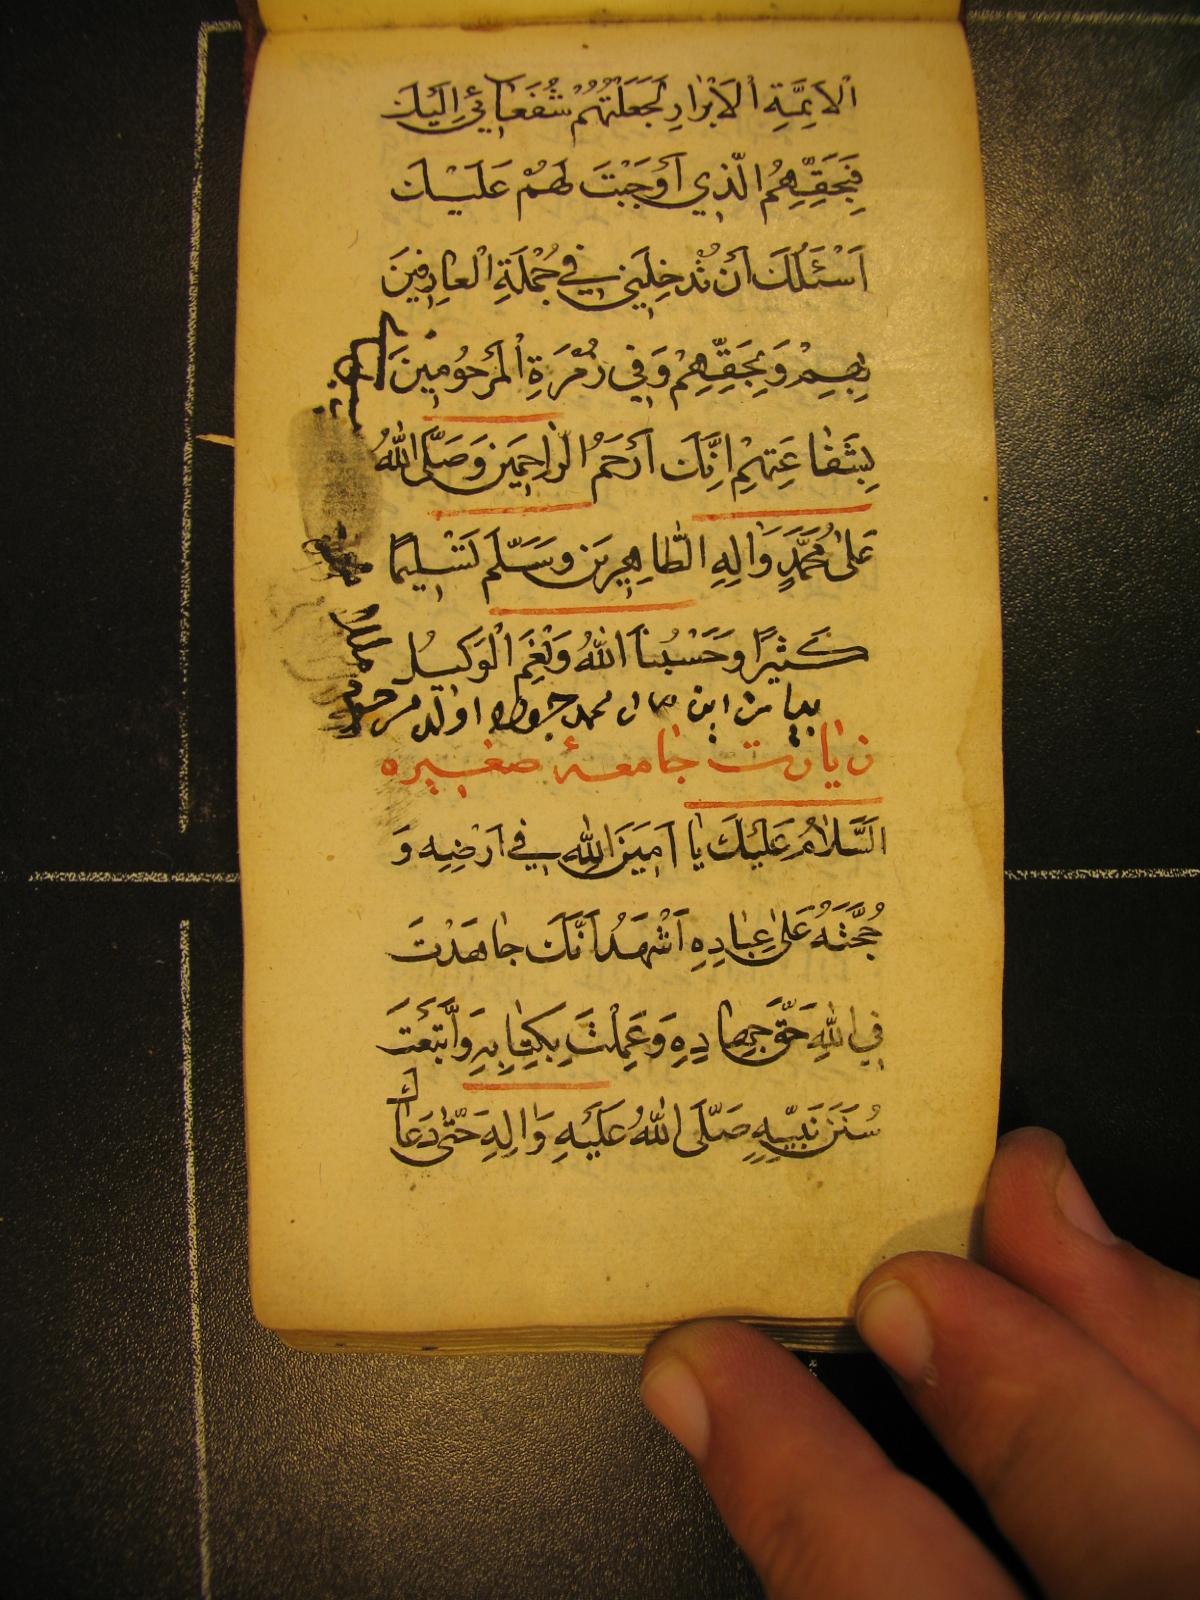 اَلْاَئِمَّةِ الْاَبْرَارِ لَجَعَلْتُهُمْ شُفَعَائِي اِلَيْكَ
فَبِحَقِّهِمُ الَّذِي اَوْجَبْتَ لَهُمْ عَلَيْكَ
اَسْئَلُكَ اَنْ تُدْخِلَنِي فِي جُمْلَةِ الْعَارِفِينَ
بِهِمْ وَبِحَقِّهِمْ وَفِي زُمْرَةِ الْمَرْحُومِينَ
بِشَفَاعَتِهِمْ اِنَّكَ اَرْحَمُ الرَّاحِمِينَ وَصَلَّى اللهُ
عَلَى مُحَمَّدٍ وَالِهِ الطَّاهِرِينَ وَسَلَّمَ تَسْلِيمًا
كَثِيرًا وَحَسْبُنَا اللهُ وَنِعْمَ الْوَكِيلُ
ابن محمد مرحوم
زيارت جامعهٔ صغيره
اَلسَّلَامُ عَلَيْكَ يَا اَمِينَ اللهِ فِي اَرْضِهِ وَ
حُجَّتَهُ عَلَى عِبَادِهِ اَشْهَدُ اَنَّكَ جَاهَدْتَ
فِي اللهِ حَقَّ جِهَادِهِ وَعَمِلْتَ بِكِتَابِهِ وَاتَّبَعْتَ
سُنَنَ نَبِيِّهِ صَلَّى اللهُ عَلَيْهِ وَالِهِ حَتَّى دَعَاكَ